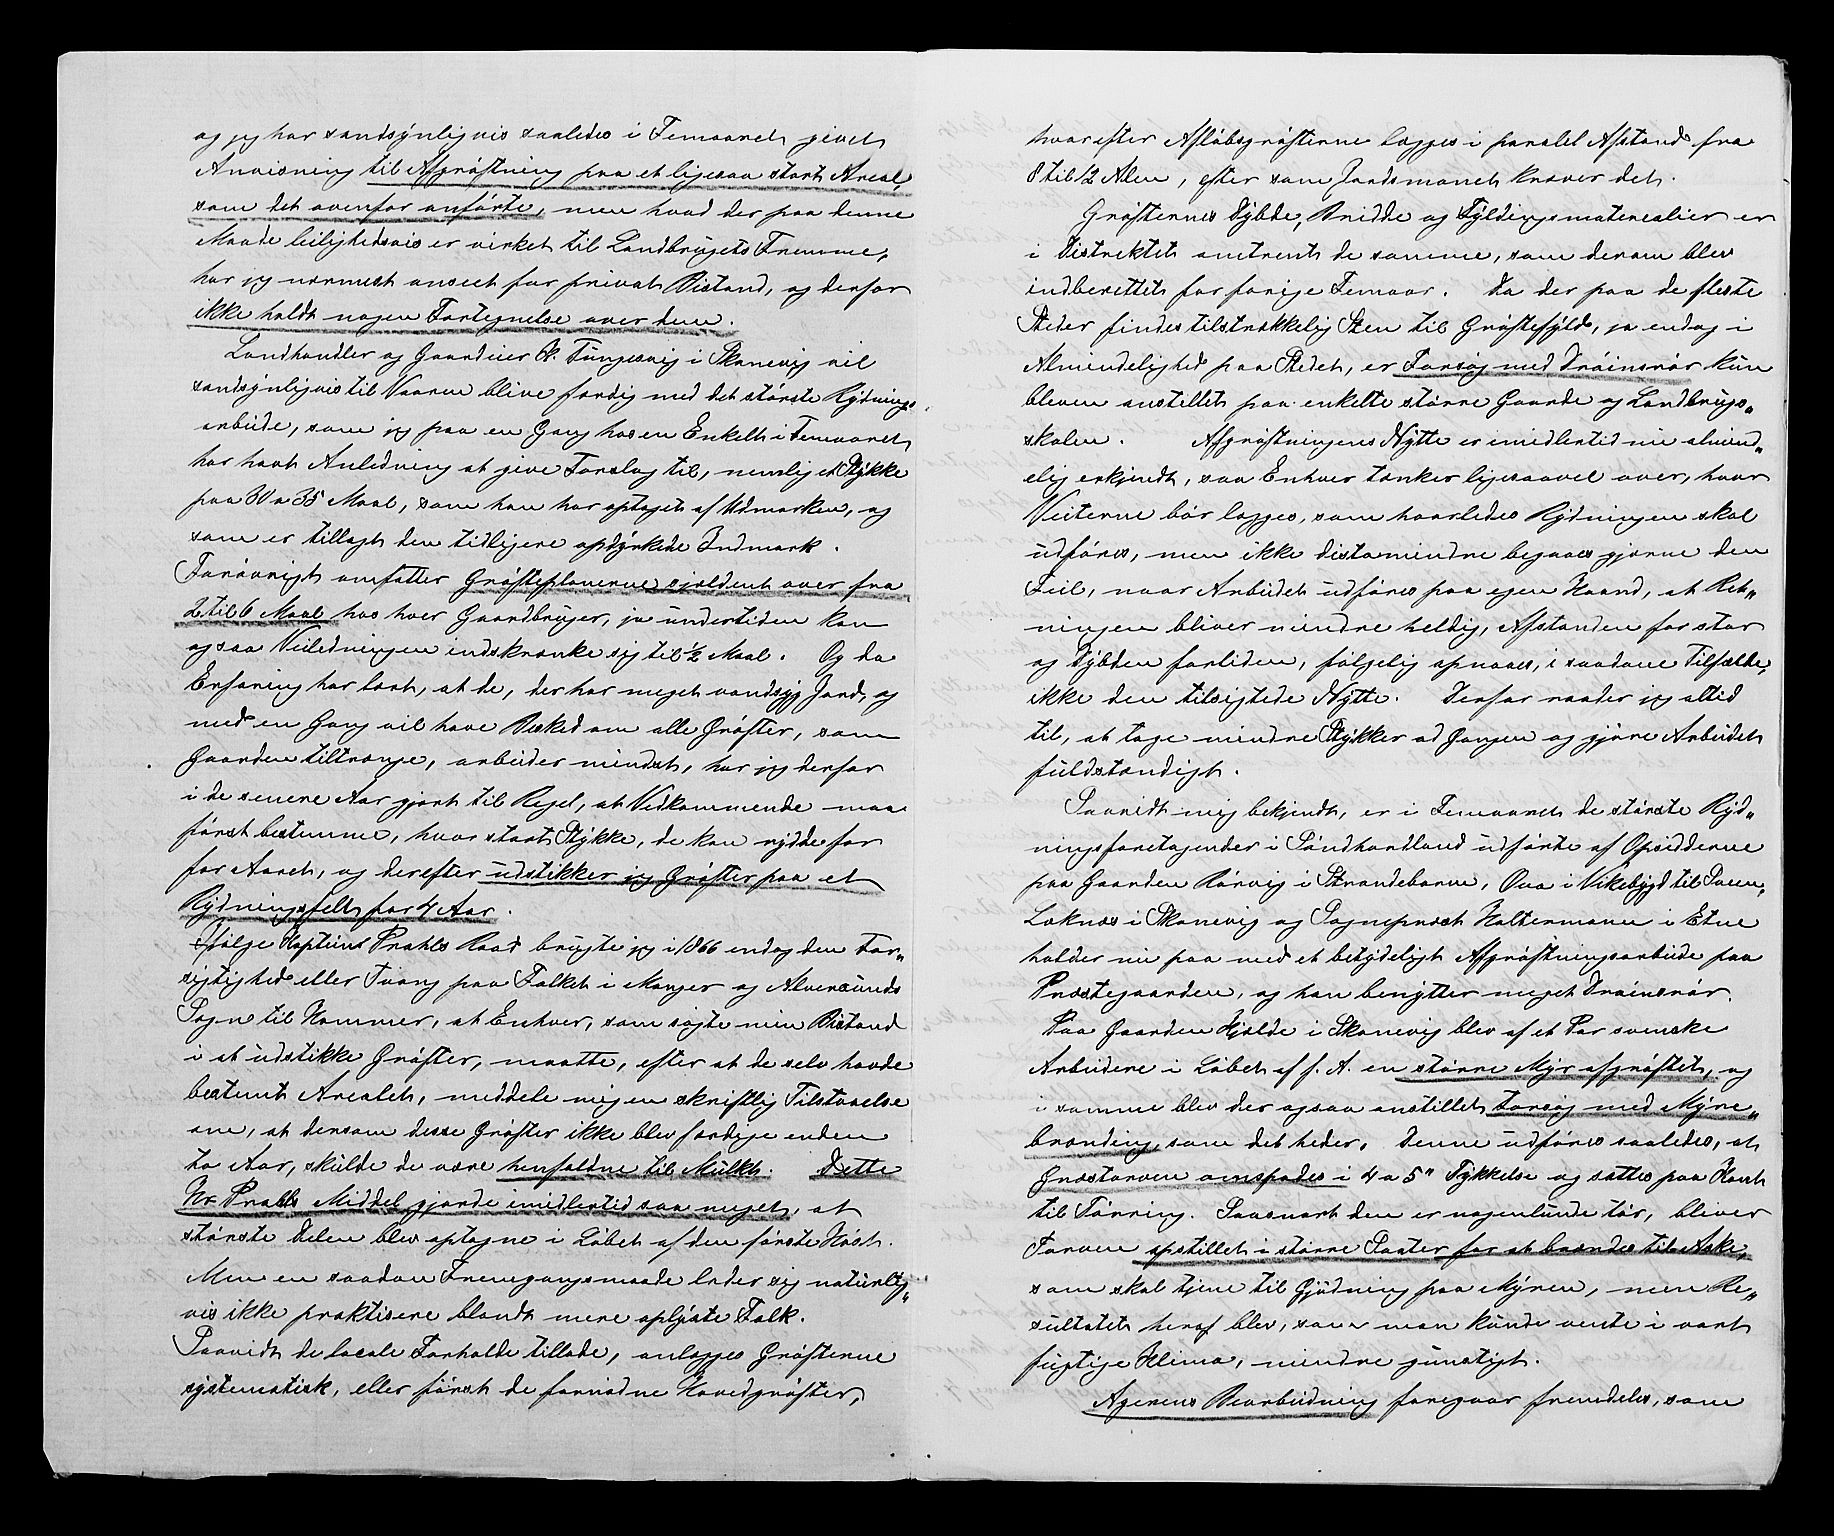 og jeg har sandsynligvis saaledes i Femaaret givet
Anvisning til Afgrøftning paa et ligesaa stort Areal,
som det ovenfor anførte, men hvad der paa denne
Maade leilighedsvis er virket til Landbrugets Fremme,
har jeg nærmest anseet for privat Bistand, og derfor
ikke holdt nogen Fortegnelse over den.
Landhandler og Gaardeier K. Tungesvig i Skanevig vil
sandsynligvis til Vaaren blive færdig med det største Rydnings
arbeide, som jeg paa en Gang hos en Enkelt i Femaaret
har havt Anledning at give Forslag til, nemlig et Stykke
paa 30 a 35 Maal, som han har optaget af Udmarken, og
som er tillagt den tidligere opdyrkede Indmark.
Forøvrigt omfatter Grøfteplanerne sjældent over fra
2 til 6 Maal hos hver Gaardbruger, ja undertiden kan
ogsaa Veiledningen indskrænke sig til ½ Maal. Og da
Erfaring har lært, at de, der har meget vandsyg Jord, og
med en Gang vil have Besked om alle Grøfter, som
Gaarden tiltrænge, arbeider mindst, har jeg derfor
i de senere Aar gjort til Regel, at Vedkommende maa
først bestemme, hvor stort Stykke, de kan rydde for
for Aaret, og derefter udstikker jeg Grøfter paa et
Rydningsfelt for 4 Aar.
Ifølge Kaptein Prahls Raad brugte jeg i 1866 endog den For„
sigtighed eller Tvang paa Folket i Manger og Alversunds
Sogne til Hammer, at Enhver, som søgte min Bistand
i at udstikke Grøfter, maatte, efter at de selv havde
bestemt Arealet, meddele mig en skriftlig Tilstaaelse
om, at dersom disse Grøfter ikke blev færdige inden
to Aar, skulde de være henfaldne til Mulkt. Dette
Hr. Prahls Middel gjorde imidlertid saa meget, at
største Delen blev optagne i Løbet af den første Høst.
Men en saadan Fremgangsmaade lader sig naturlig„
vis ikke praktisere blandt mere oplyste Folk.
Saavidt de locale Forholde tillade, anlægges Grøfterne
systematisk, eller først de fornødne Hovedgrøfter,
hvorefter Afløbsgrøfterne lægges i paralel Afstand fra
8 til 12 Alen, efter som Jordsmonet kræver det.
Grøfternes Dybde, Bridde og Fyldingsmaterealier er
i Distriktet omtrent de samme, som derom blev
indberettet for forige Femaar. Da der paa de fleste
Steder findes tilstrækkelig Sten til Grøftefyld, ja endog i
Almindelighed paa Stedet, er Forsøg med Drainsrør kun
bleven anstillet paa enkelte større Gaarde og Landbrugs„
skolen. Afgrøftningens Nytte er imidlertid nu almind„
elig erkjendt, saa Enhver tænker ligesaavel over, hvor
Veiterne bør lægges, som hvorledes Rydningen skal
udføres, men ikke distomindre begaaes gjerne den
Feil, naar Arbeidet udføres paa egen Haand, at Ret„
ningen bliver mindre heldig, Afstanden for stor
og Dybden forliden, følgelig opnaaes, i saadane Tilfælde,
ikke den tilsigtede Nytte. Derfor raader jeg altid
til, at tage mindre Stykker ad Gangen og gjøre Arbeidet
fuldstændigt.
Saavidt mig bekjendt, er i Femaaret de største Ryd„
ningsforetagender i Søndhordland udførte af Opsidderne
paa Gaarden Rørvig i Strandebarm, Øva i Vikebygd til Sveen,
Løknæs i Skanevig og Sogneprest Haltermann i Etne
holder nu paa med et betydeligt Afgrøftningsarbeide paa
Præstegaarden, og han benytter meget Drainsrør.
Paa Gaarden Hjælde i Skanevig blev af et Par svenske
Arbeidere i Løbet af f. A. en større Myr afgrøftet, og
i samme blev der ogsaa anstillet Forsøg med Myre„
brænding, som det heder. Denne udføres saaledes, at
Græstorven omspades i 4 a 5" Tykkelse og sættes paa Kant
til Tørring. Saasnart den er nogenlunde tør, bliver
Torven opstillet i større Saater for at brændes til Aske,
som skal tjene til Gjødning paa Myren, men Re„
sultatet heraf blev, som man kunde vente i vort
fugtige Klima, mindre gunstigt.
Agerens Bearbeidning foregaar fremdeles, som